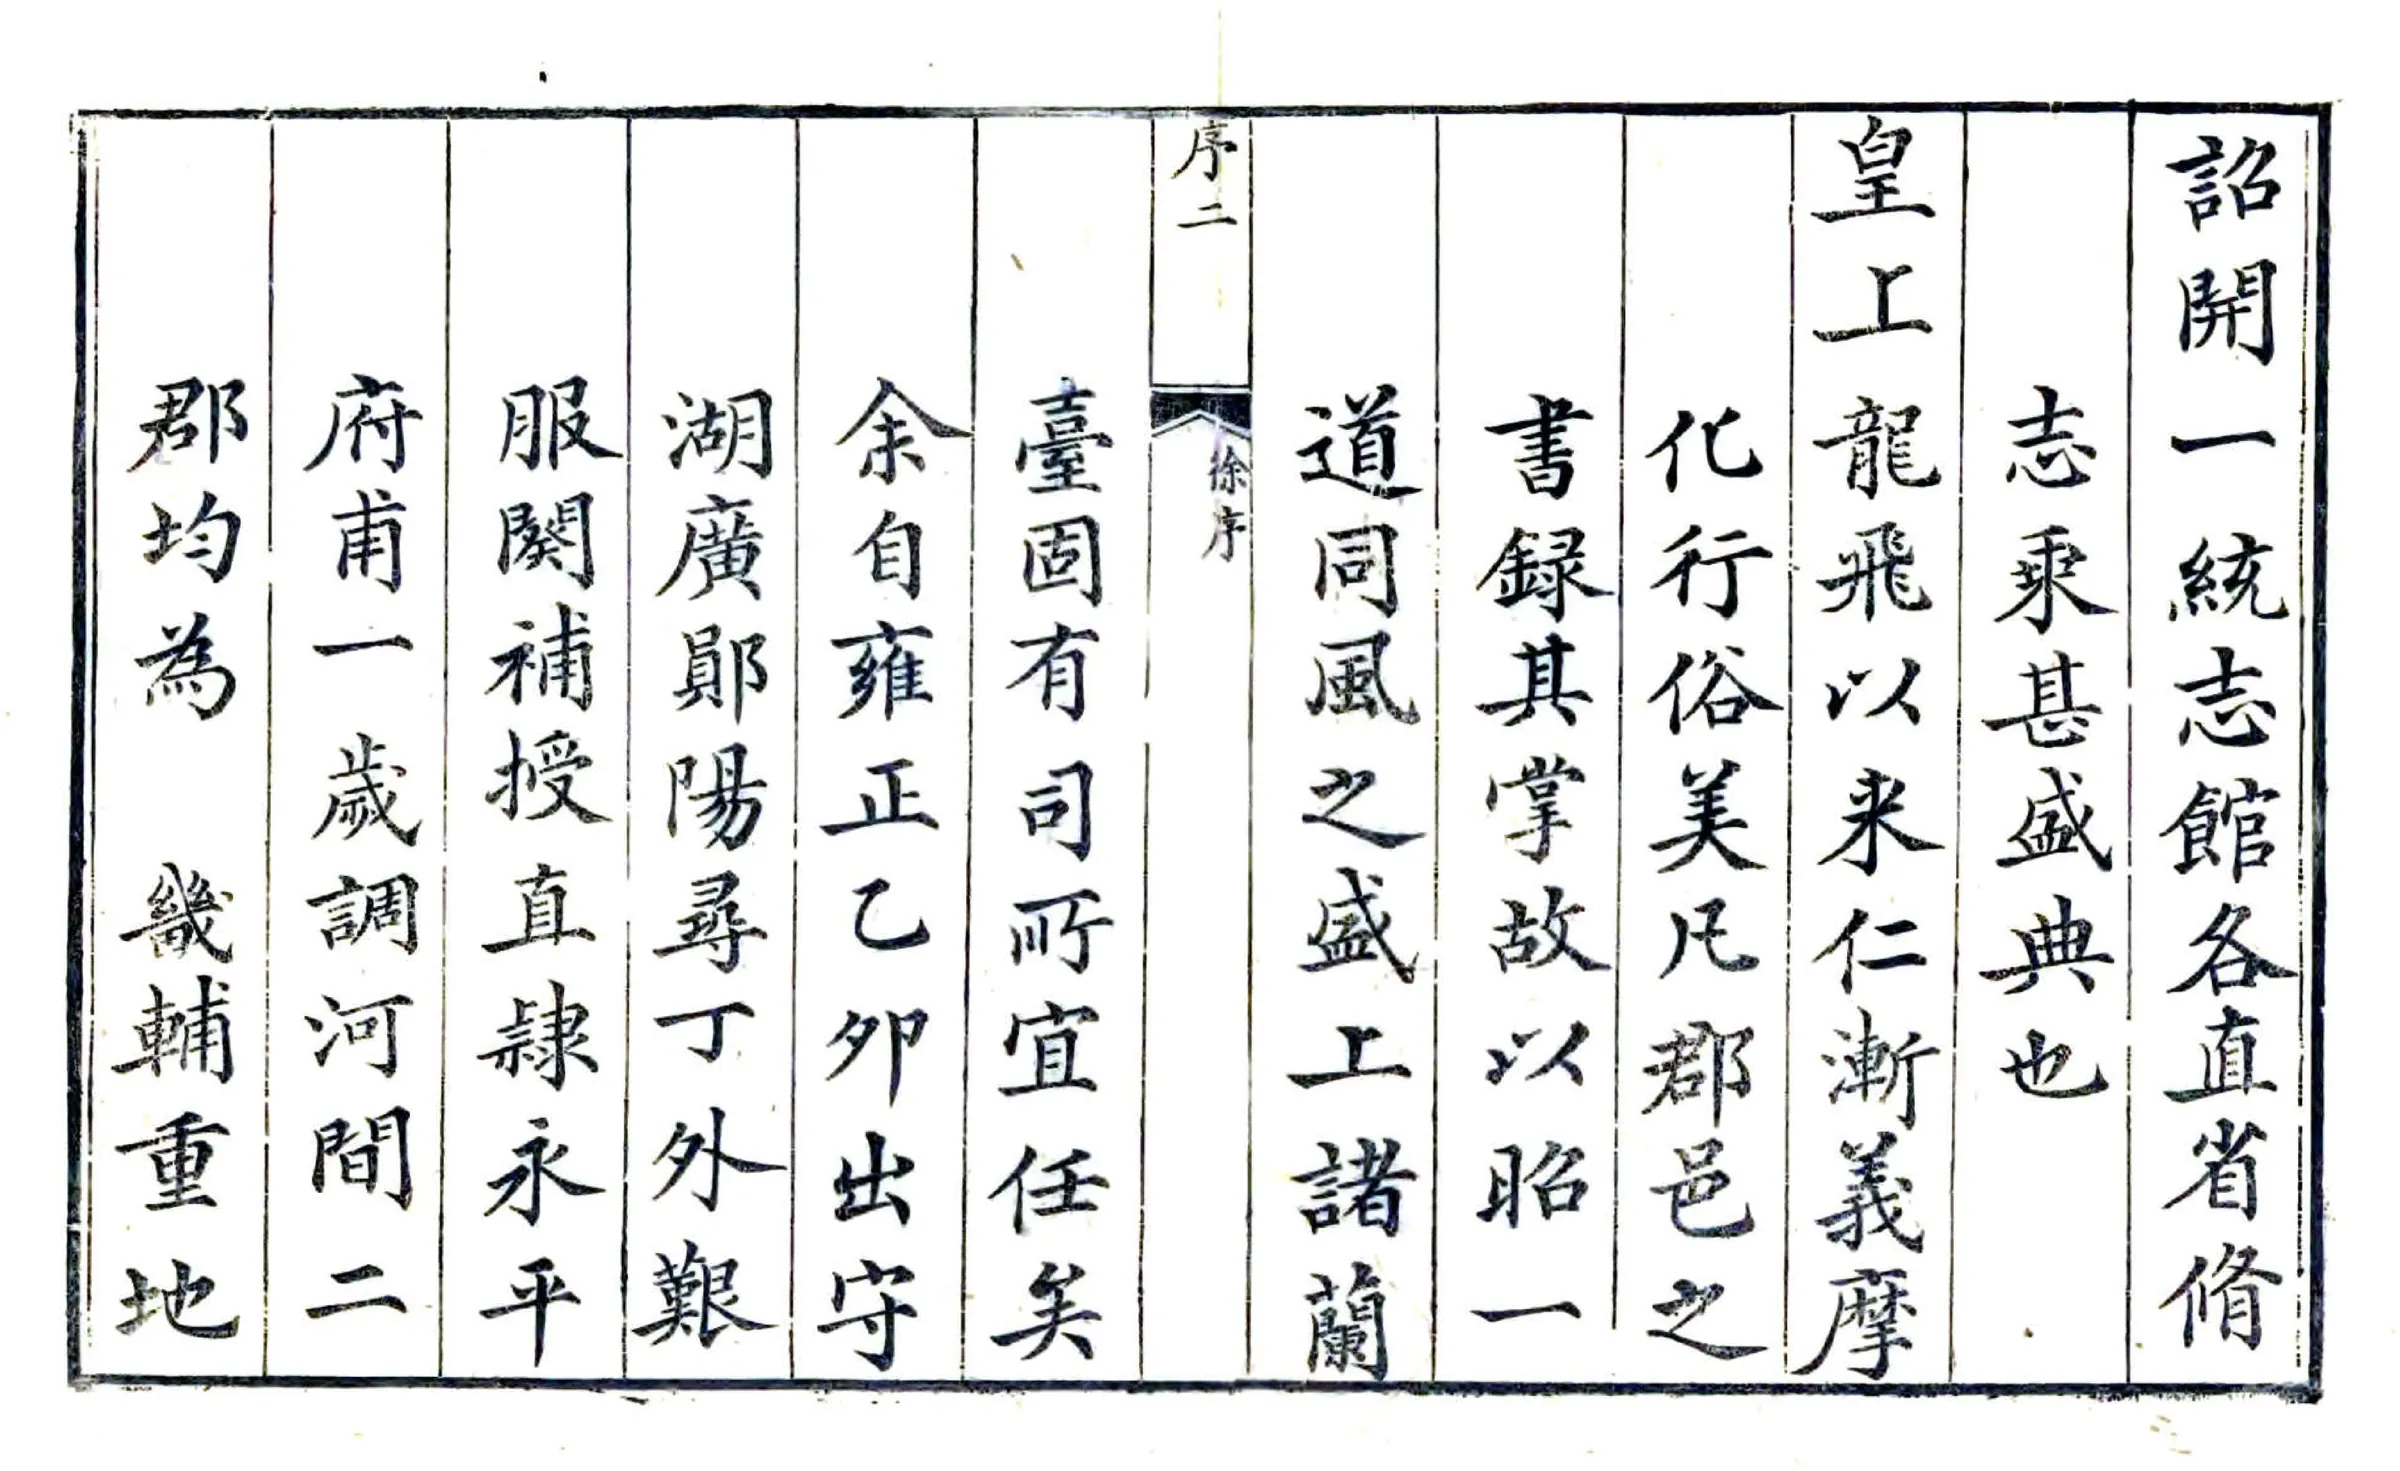 詔開一統志館各直省脩
志乘甚盛典也
皇上龍飛以来仁漸義摩
化行俗美凡郡邑之
書録其掌故以昭一
道同風之盛上諸蘭
序二
徐序
臺固有司所宜任矣
余自雍正乙卯出守
湖廣鄖陽尋丁外艱
服闋補授直隷永平
府甫一歲調河間二
郡均為 畿輔重地